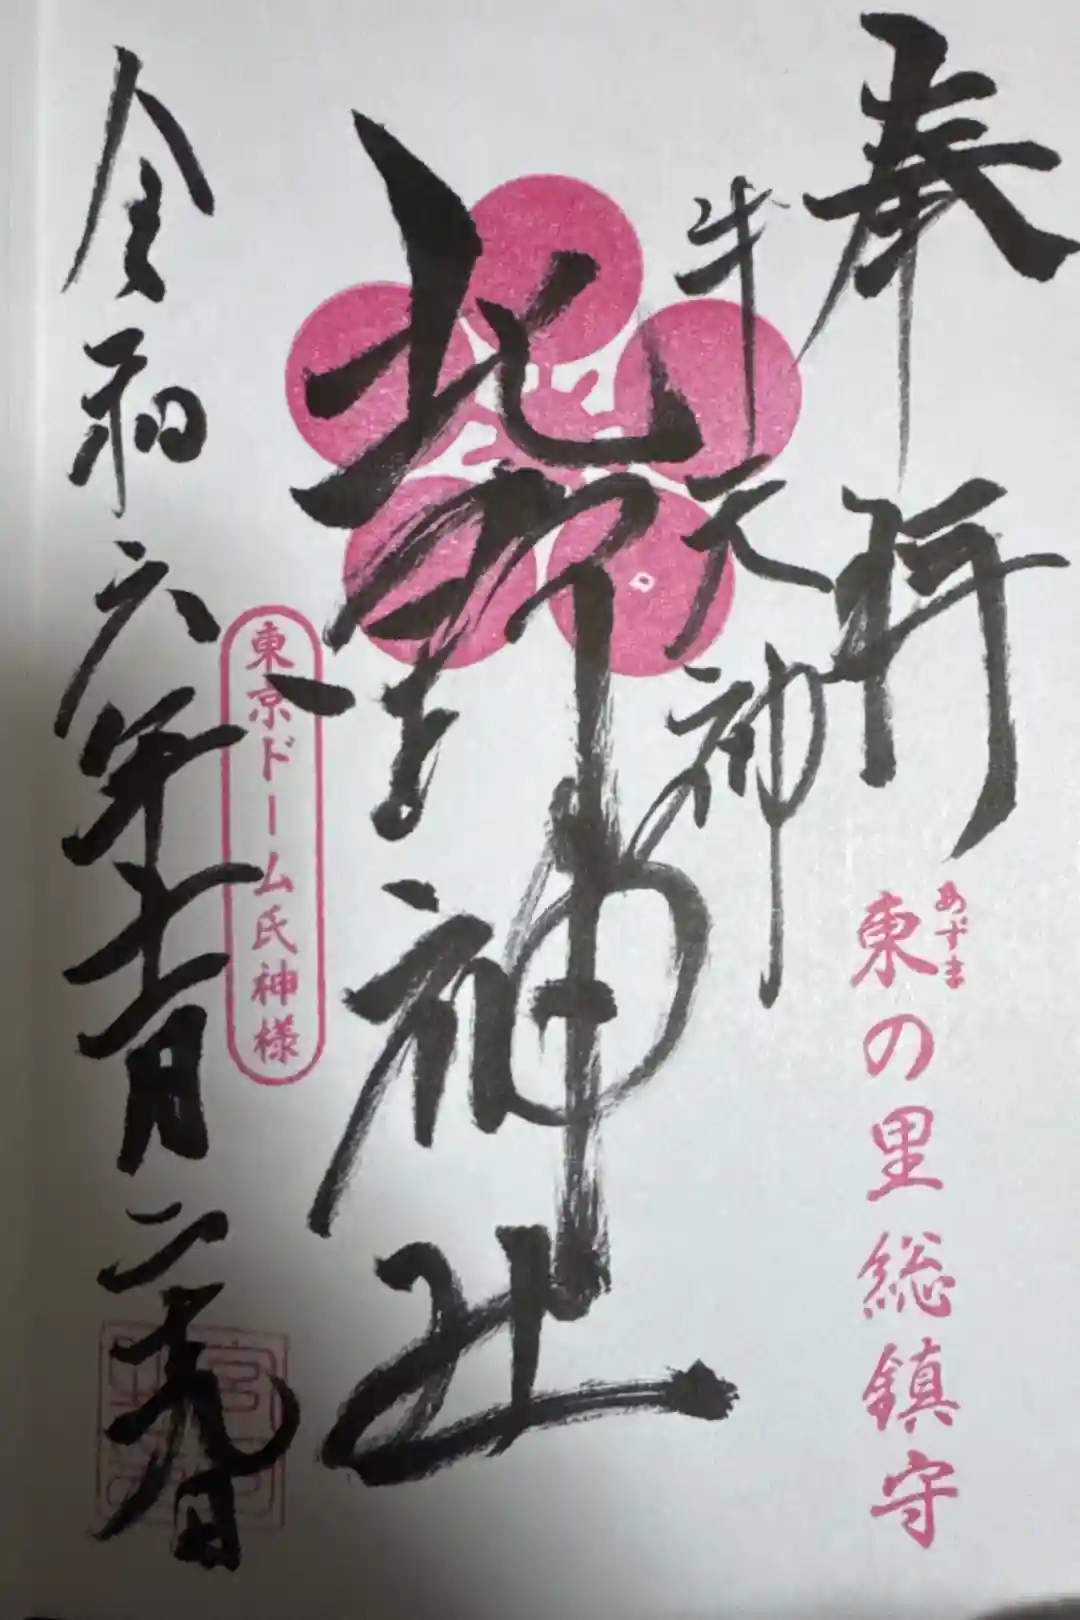 奉拝
あずま
東の里総鎮守
牛天神
北野神社
東京ドーム氏神様
令和六年十一月二十九日